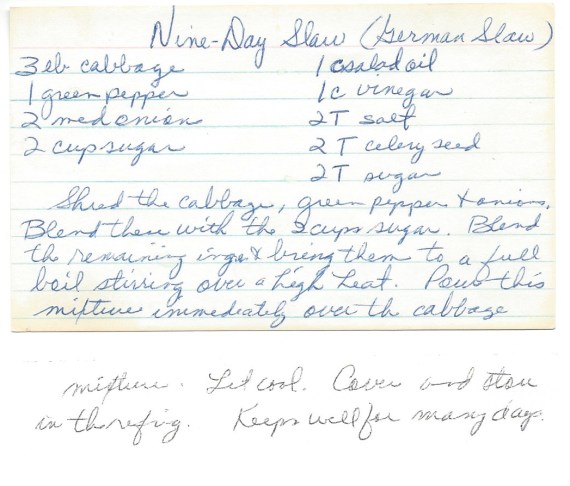 Nine-Day Slaw (German Slaw)
3 lb cabbage
1 green pepper
2 med onion
2 cup sugar
1 c salad oil
1 c vinegar
2 T salt
2 T celery seed
2 T sugar
Shred the cabbage, green pepper & onions.
Blend these with the 2 cups sugar. Blend
the remaining ingr & bring them to a full
boil stirring over a high heat. Pour this
mixture immediately over the cabbage
mixture. Let cool. Cover and store
in the refrig. Keeps well for many days.